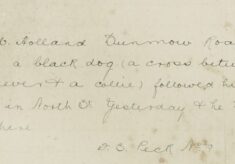 Holland Dunmow Roa
a black dog (a cross betw
ever & a collie) followed h
in North St Yesterday & he
here
D S. Peck No 7